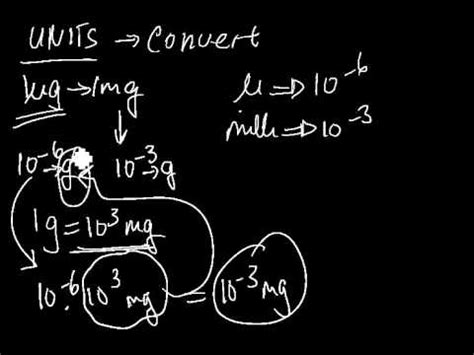 UNITS → Convert
1μg → 1mg
μ ⇒ 10⁻⁶
milli ⇒ 10⁻³
10⁻⁶ g 10⁻³ g
1g = 10³ mg
10⁻⁶ · 10³ mg = 10⁻³ mg